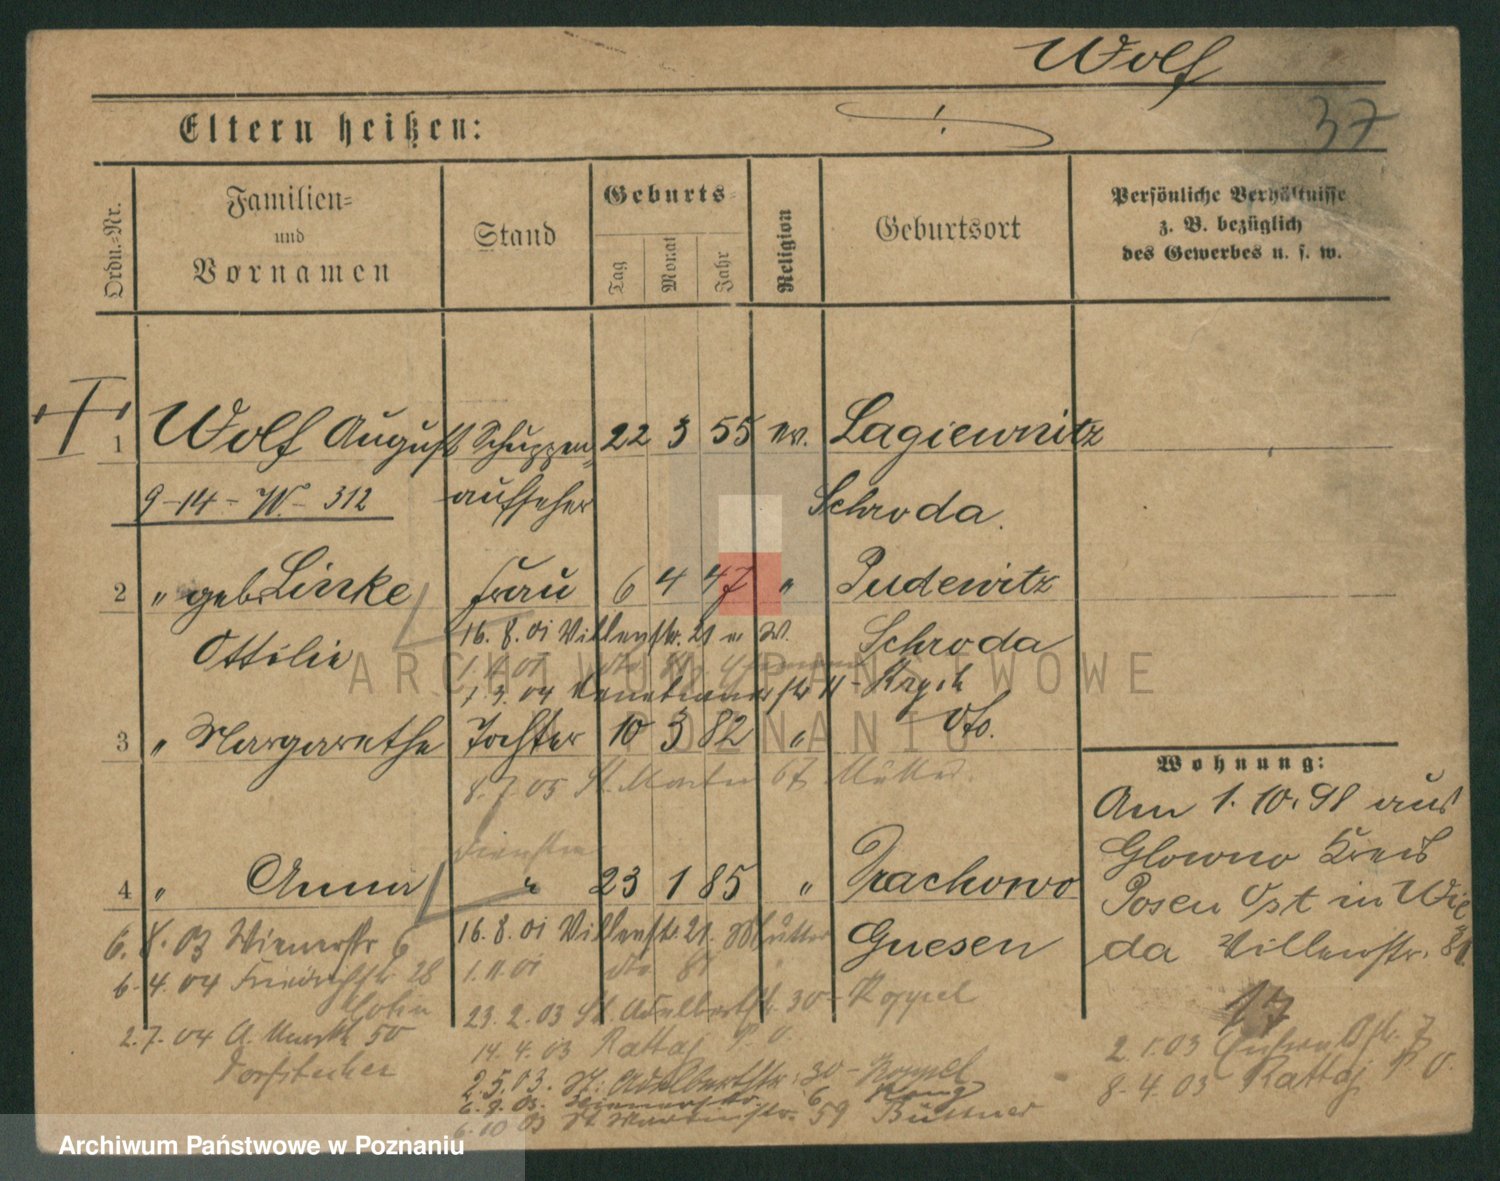 Wolf
37
Eltern heißen:
Ordn.-Nr.
Familien-
und
Vornamen
Stand
Geburts-
Tag
Monat
Jahr
Religion
Geburtsort
Persönliche Verhältnisse
z. B. bezüglich
des Gewerbes u. s. w.
1 Wolf August Schuppen- 22 3 55 ev. Lagiewnitz
9-14-W.-312 aufseher Schroda.
2 " geb. Linke Frau 6 4 47 " Pudewitz
Ottilie 16. 8. 01 Villenstr. 21 Schroda
1. 3. 04
3 " Margarethe Tochter 10 3 82 " Oto.
8. 7. 05 St. Martin 67 Müller
Wohnung:
Am 1. 10. 98 aus
Glowno Kreis
Posen Ost in Wil
da Villenstr.
4 " Anna " 23 1 85 " Trachowo
Gnesen
6. 8. 03 Wienerstr 6
16. 8. 01 Villenstr. 21. Mutter
6. 4. 04 Friedrichstr 28
1. 11. 01 dto
23. 2. 03 St. Adalbertstr. 30 - Koppel
2. 7. 04 A. Markt 50
14. 4. 03 Rattaj P. O.
25. 03. St. Adalbertstr. 30 - Koppel
6. 9. 03. Wienerstr. 6
6. 10 03 St. Martinstr. 59 Büttner
2. 1. 03
8. 4. 03 Rattaj P. O.
ARCHIWUM PAŃSTWOWE
POZNANIU
Archiwum Państwowe w Poznaniu